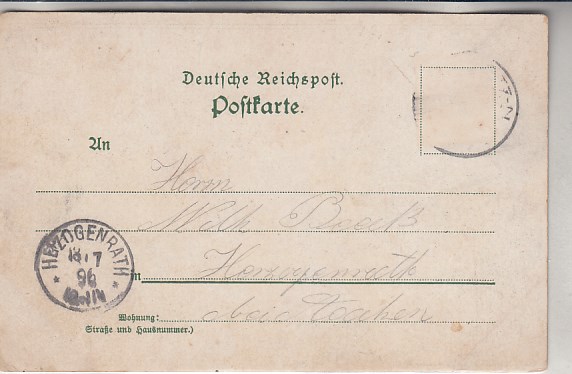 Deutsche Reichspost.
Postkarte.
An
Herrn
Wilh
in Herzogenrath
bei Aachen
Wohnung:
(Straße und Hausnummer.)
HERZOGENRATH
18 7
96